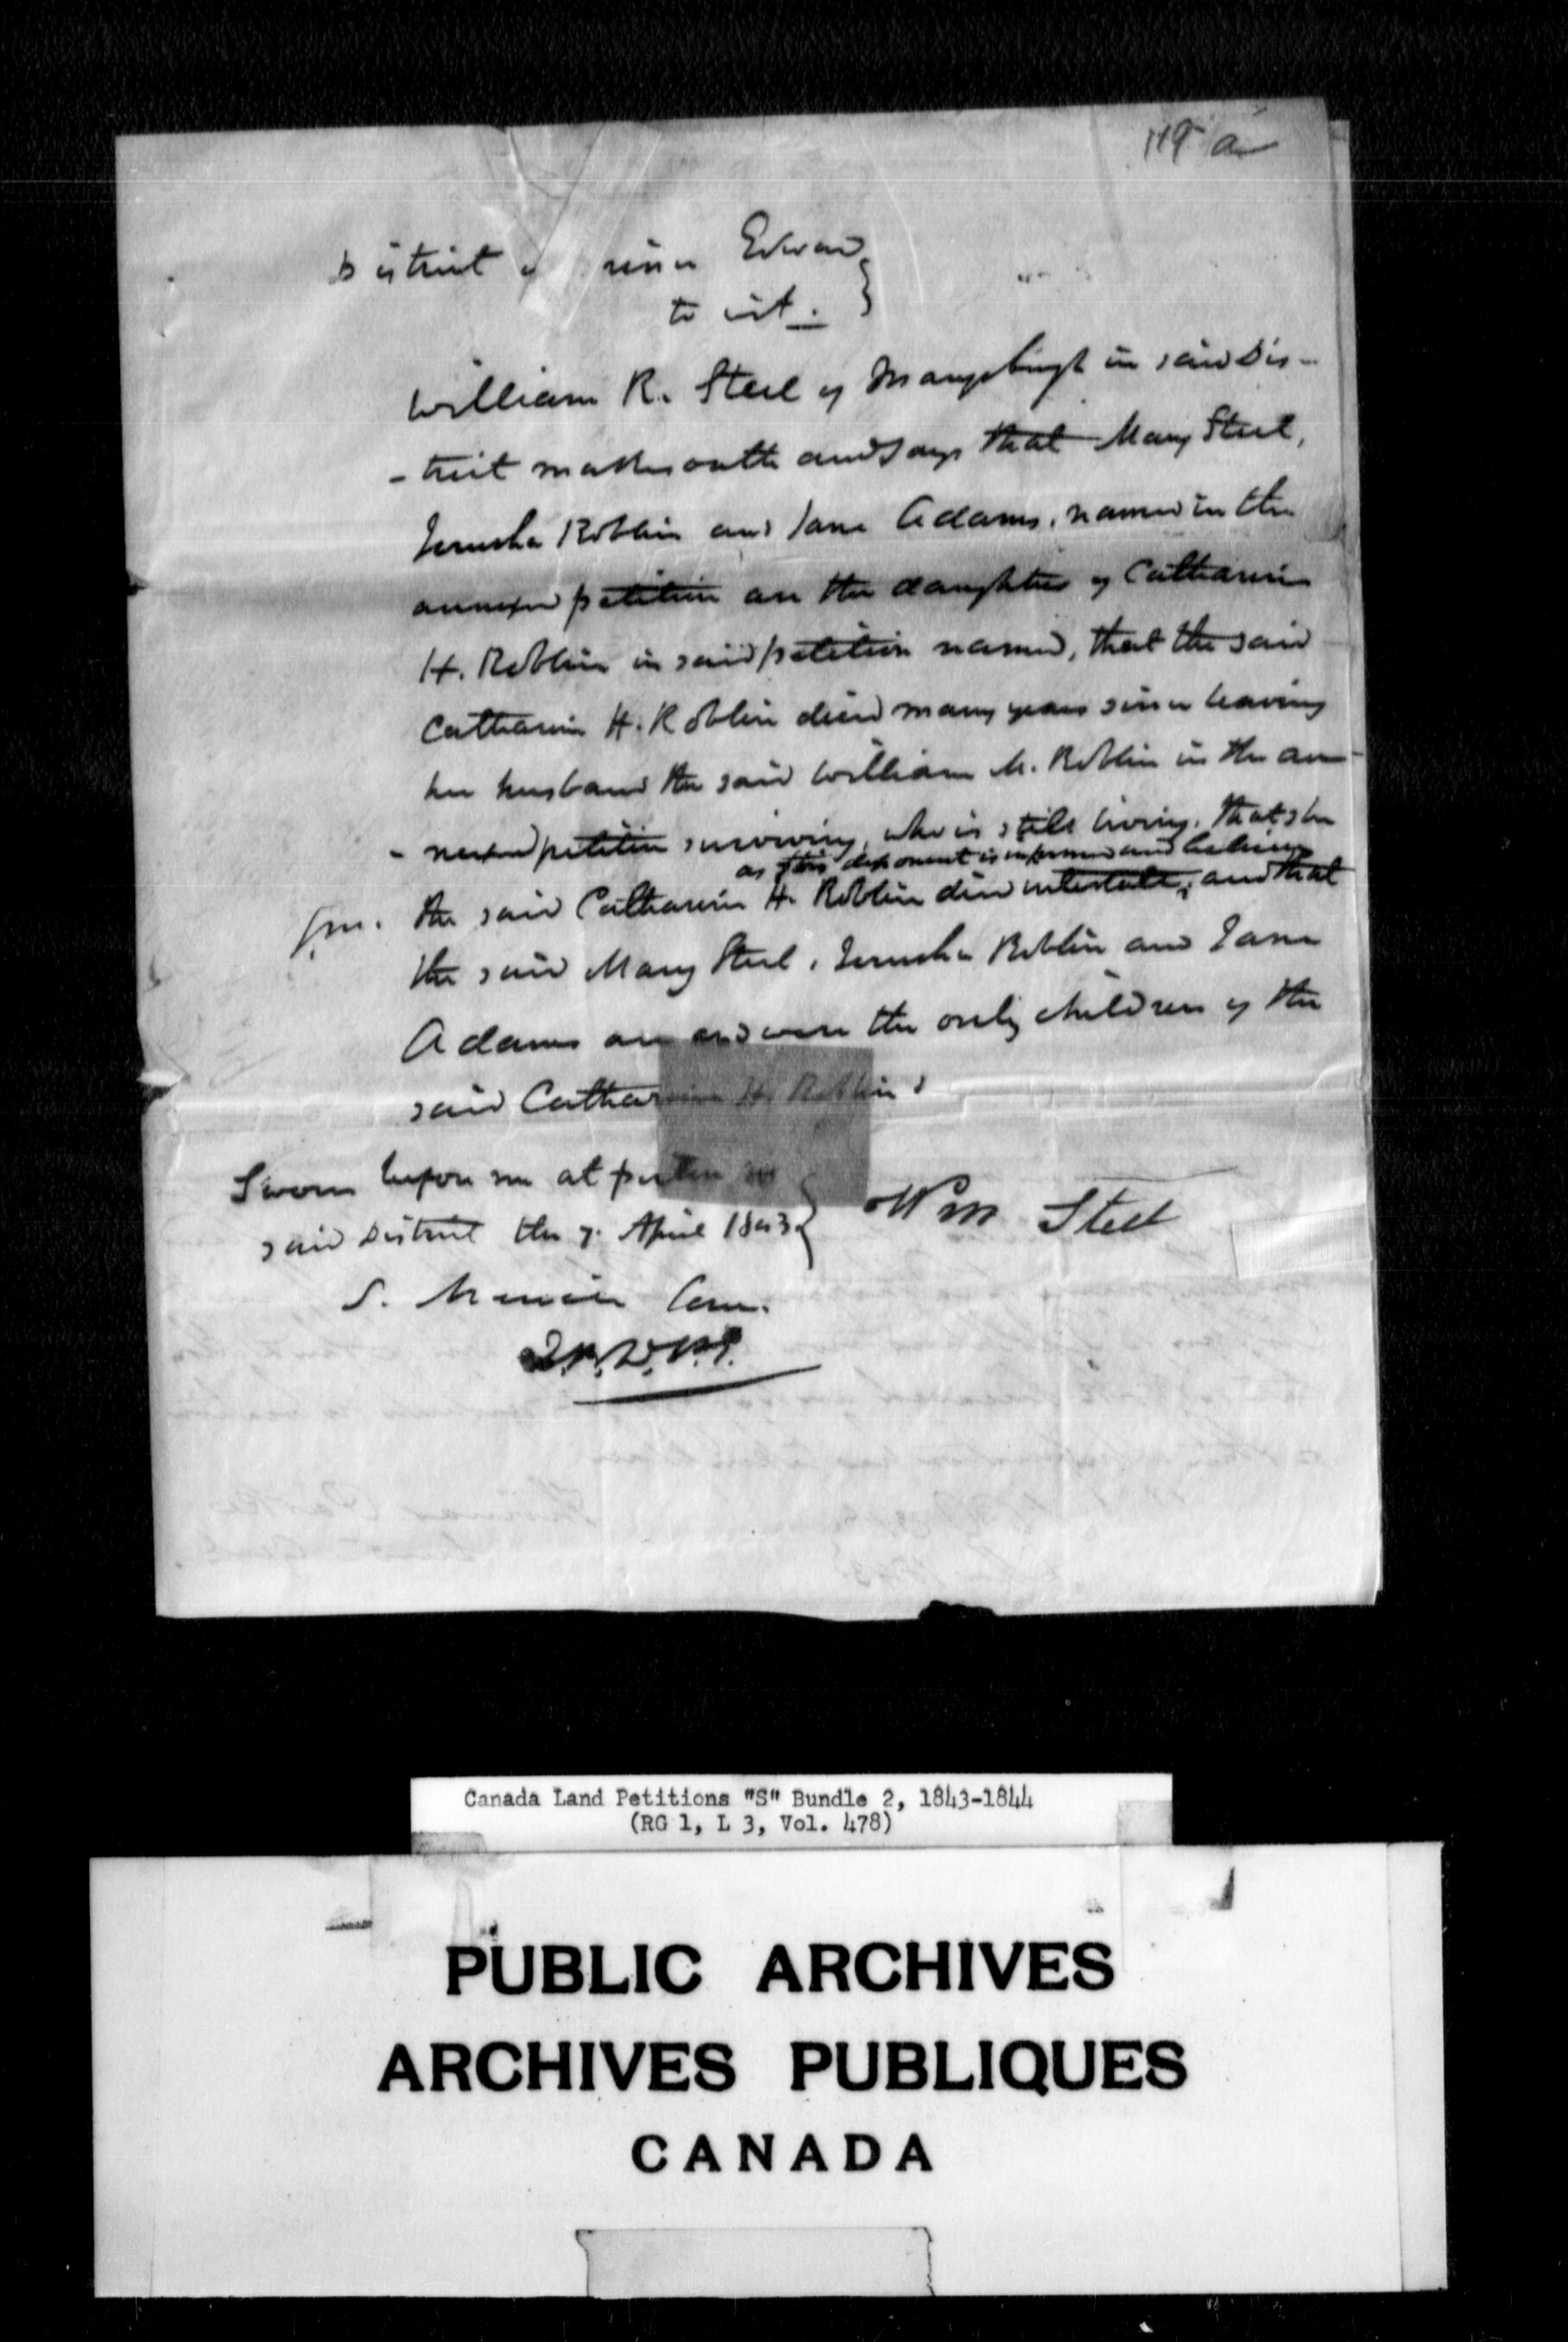 119 a
District of Prince Edward }
to wit. }
William R. Steel of Marysburgh in said Dis-
-trict maketh oath and says that Mary Steel,
Jerusha Roblin and Jane Adams, named in the
annexed petition are the daughters of Catharine
H. Roblin in said petition named, that the said
Catharine H. Roblin died many years since leaving
her husband the said William M. Roblin in the an-
-nexed petition surviving, who is still living. That she
as this deponent is informed and believes
the said Catharine H. Roblin died intestate, and that
the said Mary Steel, Jerusha Roblin and Jane
Adams are and were the only children of the
said Catharine H. Roblin.
Sworn before me at Picton in }
said District the 7. April 1843 }
Wm Steel
S. Com.
Canada Land Petitions "S" Bundle 2, 1843-1844
(RG 1, L 3, Vol. 478)
PUBLIC ARCHIVES
ARCHIVES PUBLIQUES
CANADA